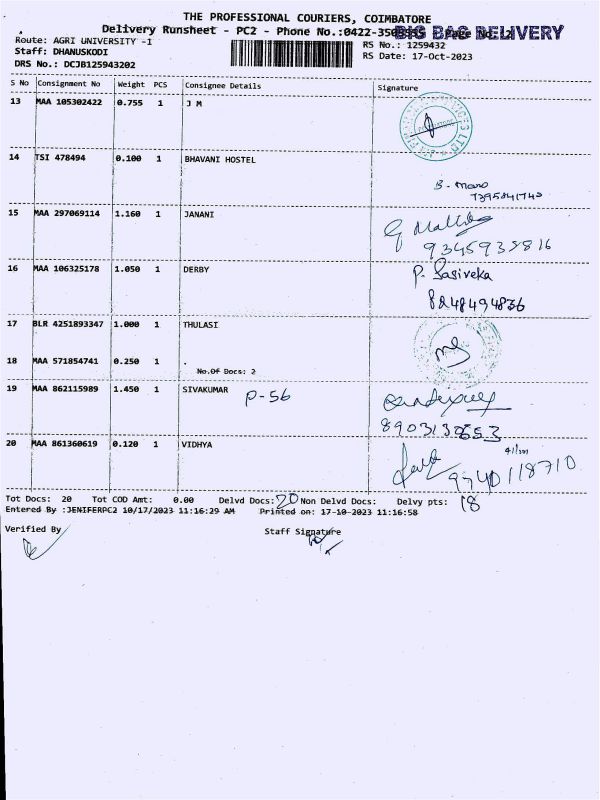 THE PROFESSIONAL COURIERS, COIMBATORE
Delivery Runsheet - PC2 - Phone No.:0422-3505555 Page No.:2
BIG BAG DELIVERY
Route: AGRI UNIVERSITY -1
RS No.: 1259432
Staff: DHANUSKODI
RS Date: 17-Oct-2023
DRS No.: DCJB125943202
S No Consignment No Weight PCS Consignee Details Signature
13 MAA 105302422 0.755 1 J M
14 TSI 478494 0.100 1 BHAVANI HOSTEL
B. Mano
15 MAA 297069114 1.160 1 JANANI
9345935816
16 MAA 106325178 1.050 1 DERBY P. Sasireka
8248494836
17 BLR 4251893347 1.000 1 THULASI
18 MAA 571854741 0.250 1 .
No.Of Docs: 2
19 MAA 862115989 1.450 1 SIVAKUMAR P-56
20 MAA 861360619 0.120 1 VIDHYA
9740118710
Tot Docs: 20 Tot COD Amt: 0.00 Delvd Docs: 20 Non Delvd Docs: Delvy pts: 18
Entered By :JENIFERPC2 10/17/2023 11:16:29 AM Printed on: 17-10-2023 11:16:58
Verified By
Staff Signature